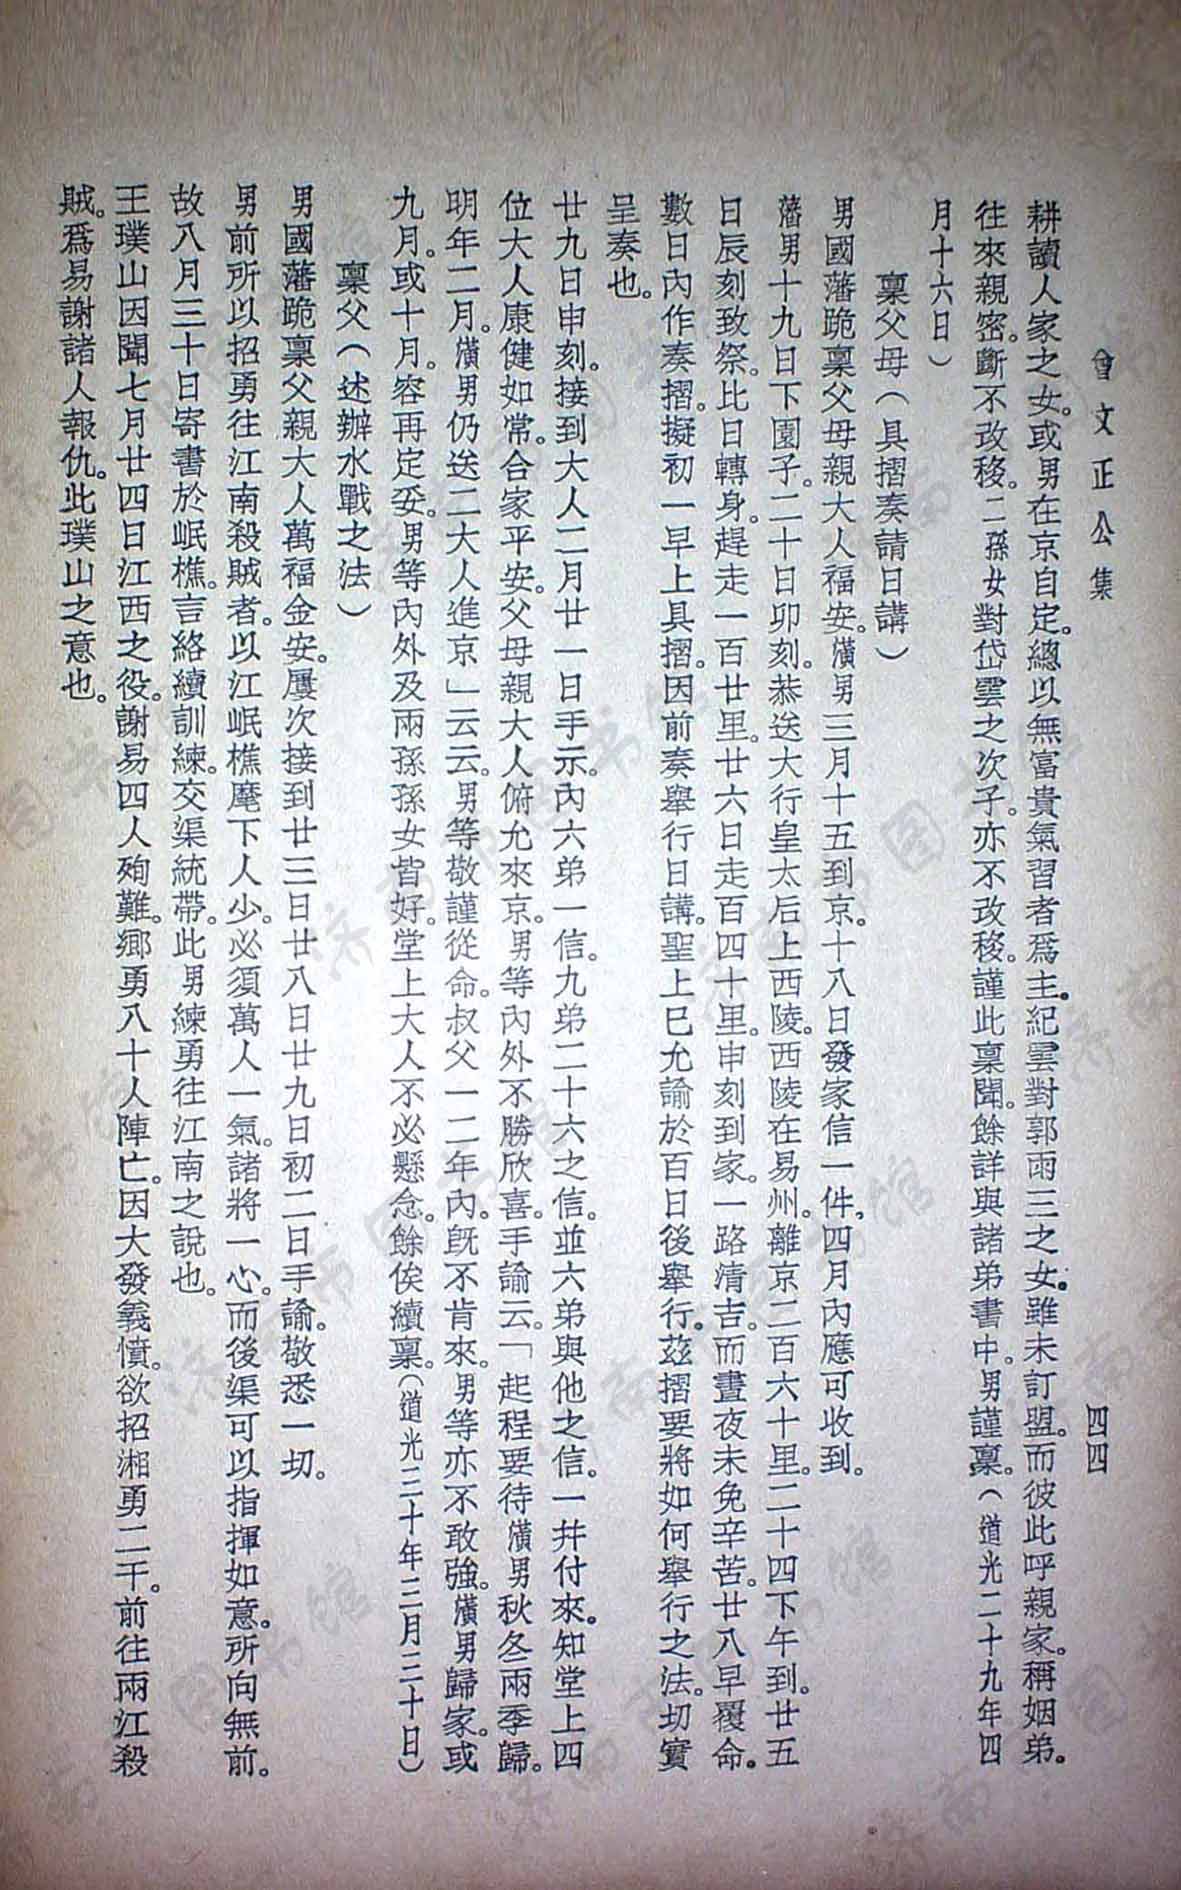 曾文正公集
四四
耕讀人家之女。或男在京自定。總以無富貴氣習者爲主。紀雲對郭雨三之女。雖未訂盟。而彼此呼親家。稱姻弟。
往來親密。斷不改移。二孫女對岱雲之次子。亦不改移。謹此稟聞。餘詳與諸弟書中。男謹稟。（道光二十九年四
月十六日）
稟父母（具摺奏請日講）
男國藩跪稟父母親大人福安。潢男三月十五到京。十八日發家信一件。四月內應可收到。
藩男十九日下園子。二十日卯刻。恭送大行皇太后上西陵。西陵在易州。離京二百六十里。二十四下午到。廿五
日辰刻致祭。比日轉身。趕走一百廿里。廿六日走百四十里。申刻到家。一路清吉。而晝夜未免辛苦。廿八早覆命。
數日內作奏摺。擬初一早上具摺。因前奏舉行日講。聖上已允諭於百日後舉行。茲摺要將如何舉行之法。切實
呈奏也。
廿九日申刻。接到大人二月廿一日手示。內六弟一信。九弟二十六之信。並六弟與他之信。一并付來。知堂上四
位大人康健如常。合家平安。父母親大人俯允來京。男等內外不勝欣喜。手諭云。「起程要待潢男秋冬兩季歸。
明年二月。潢男仍送二大人進京」云云。男等敬謹從命。叔父一二年內。旣不肯來。男等亦不敢強。潢男歸家。或
九月。或十月。容再定妥。男等內外及兩孫孫女皆好。堂上大人不必懸念。餘俟續稟。（道光三十年三月三十日）
稟父（述辦水戰之法）
男國藩跪稟父親大人萬福金安。屢次接到廿三日廿八日廿九日初二日手諭。敬悉一切。
男前所以招勇往江南殺賊者。以江岷樵麾下人少。必須萬人一氣。諸將一心。而後渠可以指揮如意。所向無前。
故八月三十日寄書於岷樵。言絡續訓練。交渠統帶。此男練勇往江南之說也。
王璞山因聞七月廿四日江西之役。謝易四人殉難。鄉勇八十人陣亡。因大發義憤。欲招湘勇二千。前往兩江殺
賊。爲易謝諸人報仇。此璞山之意也。